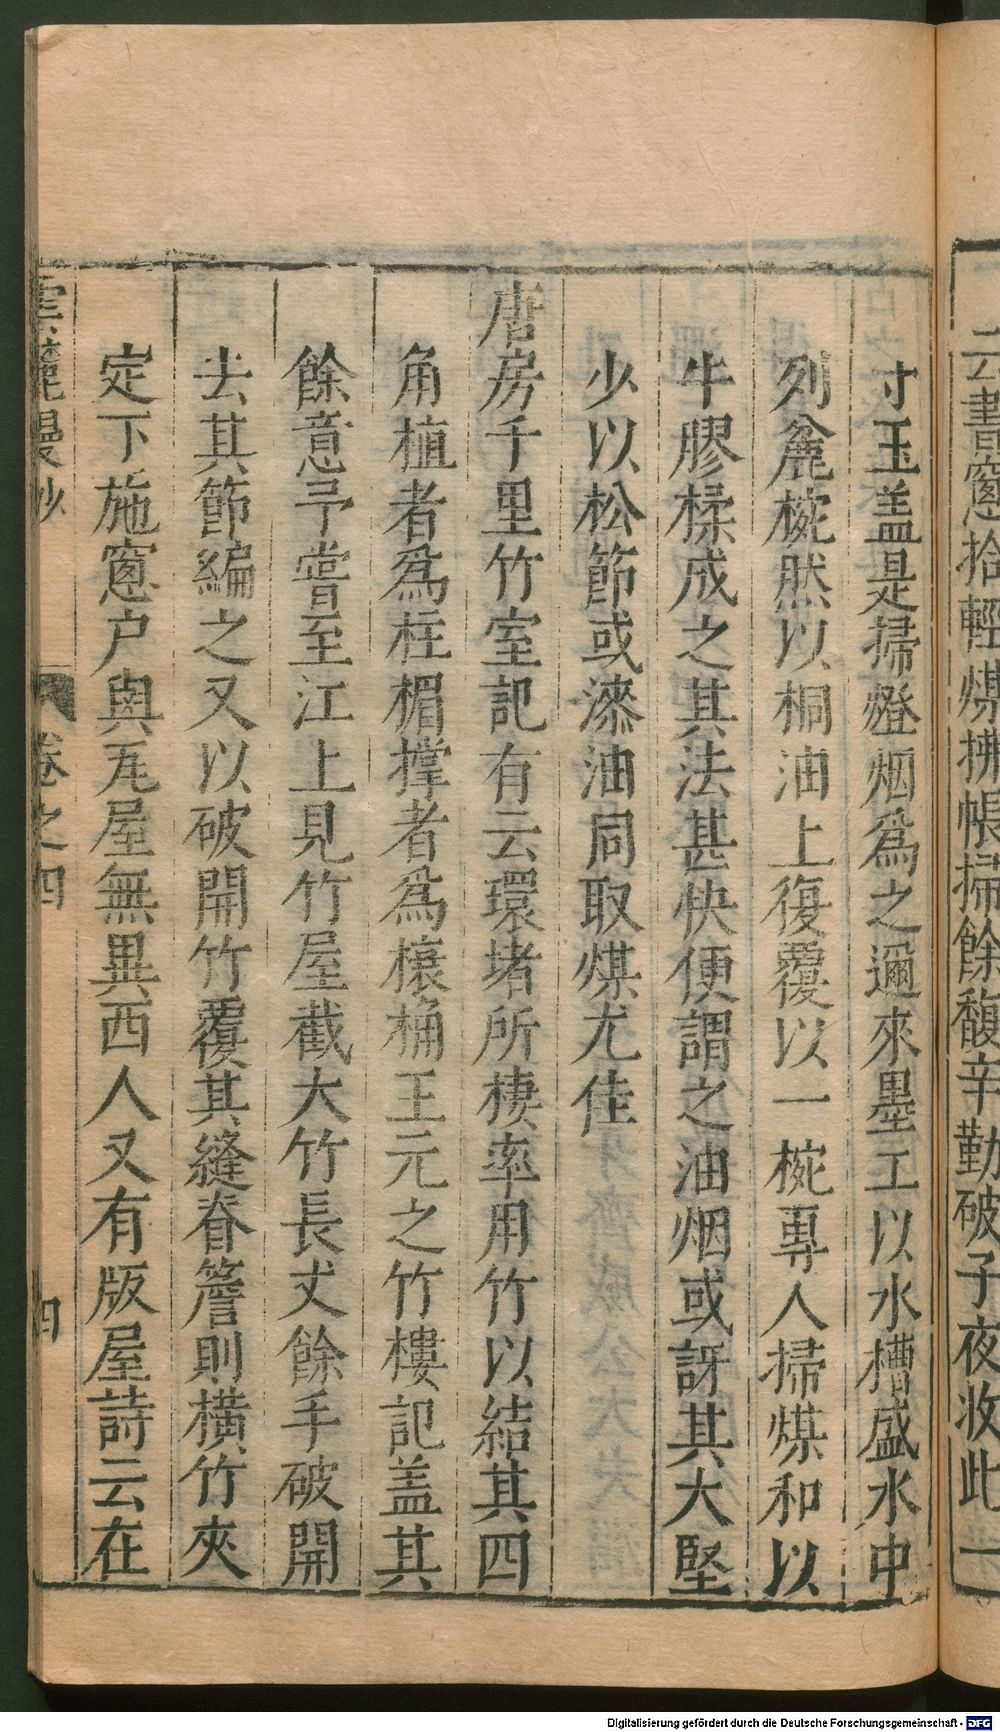 云書窓拾輕煤拂帳掃餘馥辛勤破孑夜收此一
寸玉盖是掃燈烟爲之邇來墨工以水槽盛水中
列麄椀然以桐油上復覆以一椀專人掃煤和以
牛膠揉成之其法甚快便謂之油烟或訝其大堅
少以松節或漆油同取煤尤佳
唐房千里竹室記有云環堵所棲率用竹以結其四
角植者爲柱楣撑者爲榱桷王元之竹樓記盖其
餘意予嘗至江上見竹屋截大竹長丈餘手破開
去其節編之又以破開竹覆其縫脊簷則橫竹夾
定下施窓户與瓦屋無異西人又有版屋詩云在
雲麓漫抄 卷之四 四
Digitalisierung gefördert durch die Deutsche Forschungsgemeinschaft - DFG